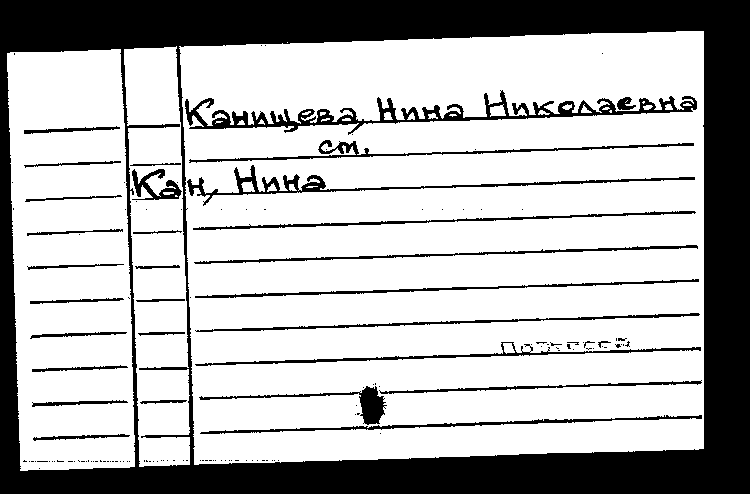 Канищева, Нина Николаевна
ст.
Кан, Нина